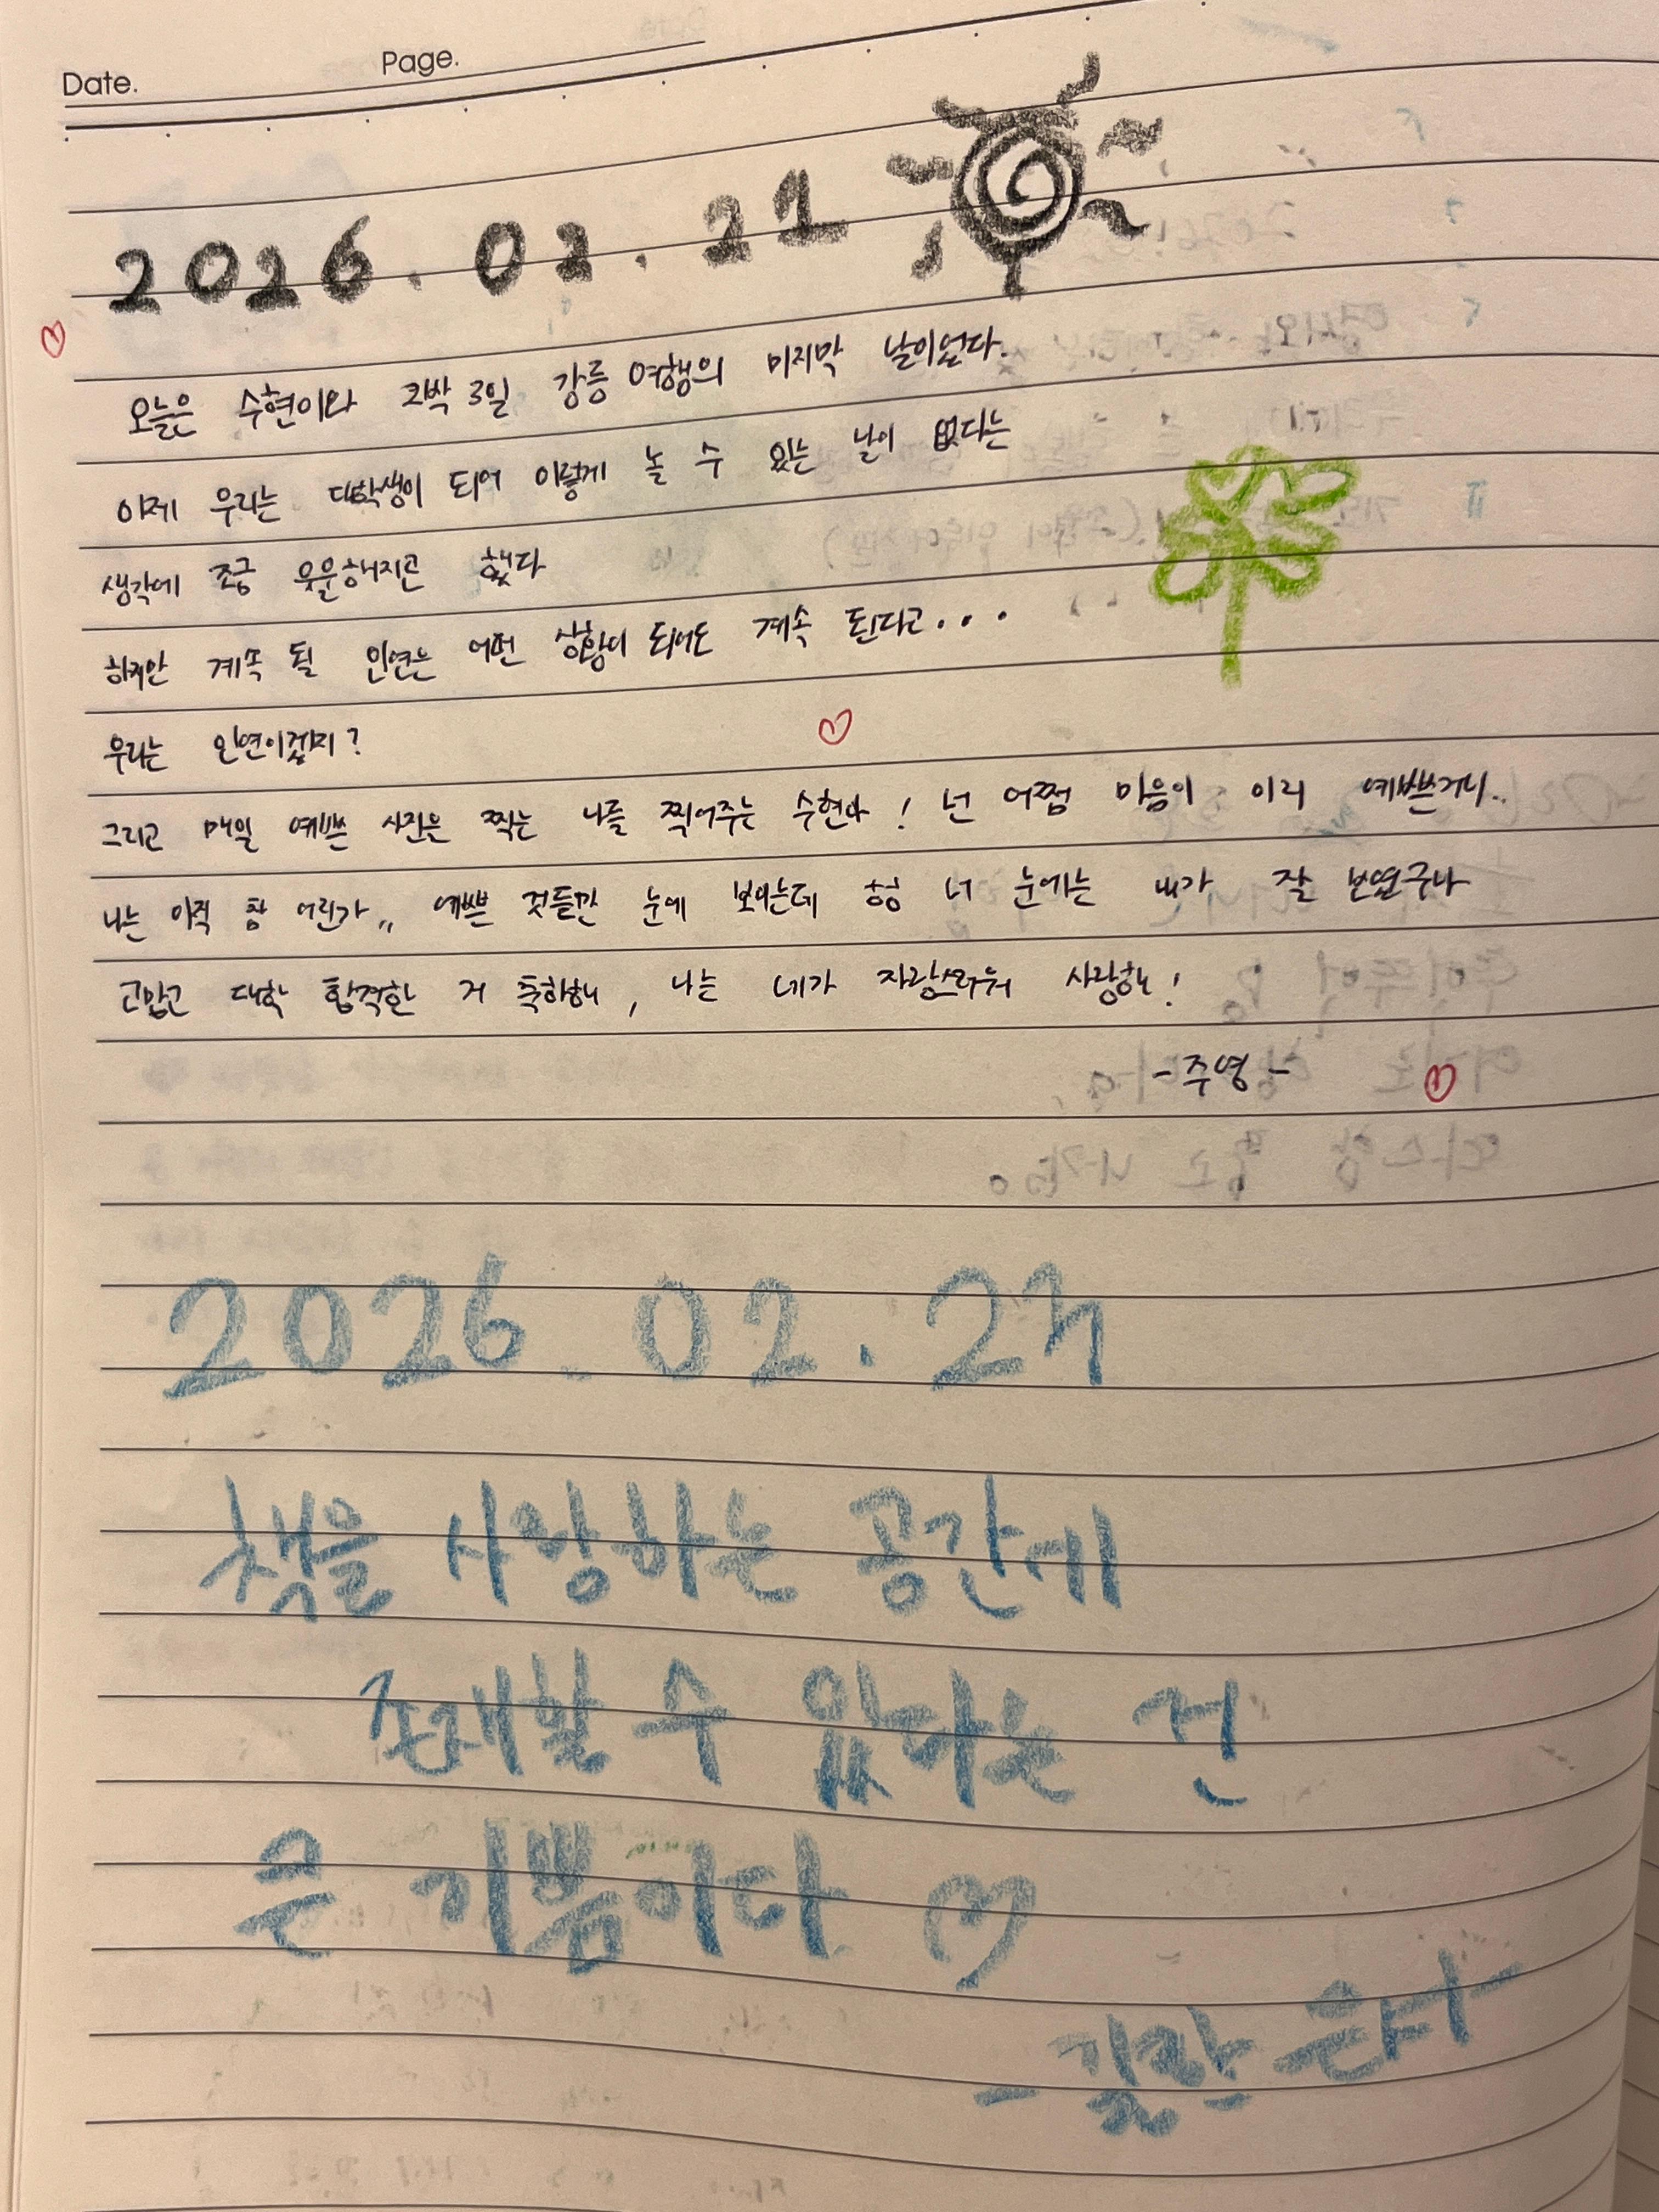 Date. Page.
2026. 02. 21
오늘은 수현이와 2박 3일 강릉 여행의 마지막 날이었다.
이제 우리는 대학생이 되어 이렇게 놀 수 있는 날이 없다는
생각에 조금 웃문해지곤 했다
하지만 계속 될 인연은 어떤 상황이 되어도 계속 된다고...
우리는 인연이겠지?
그리고 매일 예쁜 사진은 찍는 나를 찍어주는 수현아! 넌 어쩜 마음이 이리 예쁘거니..
나는 아직 참 어린가,, 예쁜 것들만 눈에 보이는데 헝 너 눈에는 내가 잘 보였구나
고맙고 대학 합격한 거 축하해, 나는 네가 자랑스러워 사랑해!
-주영-
2026. 02. 27
책을 사랑하는 공간에
존재할 수 있다는 건
큰 기쁨이다